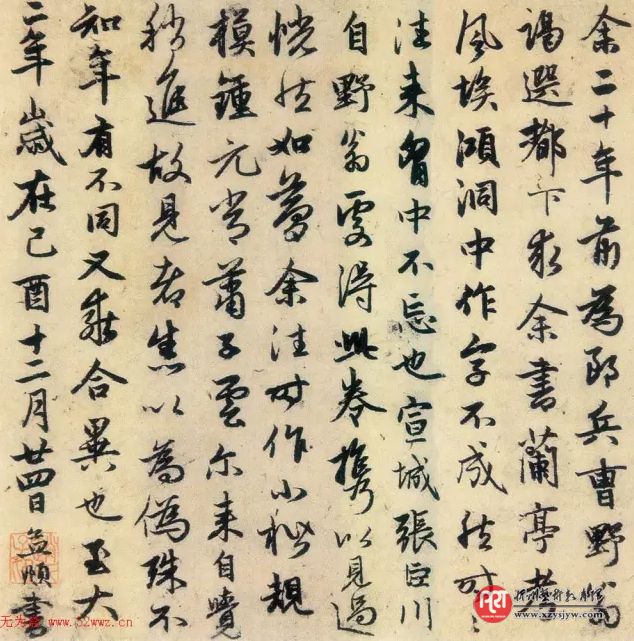 余二十年前為郎兵曹野翁
謁選都下求余書蘭亭考
風埃澒洞中作字不成然时
往来胷中不忘也宣城張巨川
自野翁處得此卷携以見過
恍然如夢余往时作小楷規
模鍾元常蕭子雲尔来自覺
稍進故見者悉以為偽殊不
知年有不同又乖合異也至大
二年歲在己酉十二月廿四日孟頫書
无为斋 www.52wwz.cn
www.xzysjyw.com